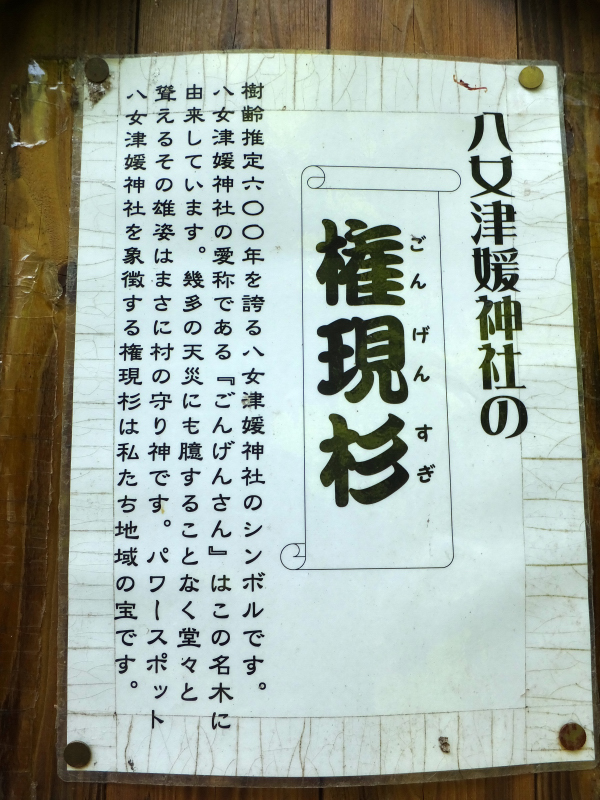 八女津媛神社の
権現杉
ごんげんすぎ
樹齢推定六〇〇年を誇る八女津媛神社のシンボルです。
八女津媛神社の愛称である『ごんげんさん』はこの名木に
由来しています。幾多の天災にも臆することなく堂々と
聳えるその雄姿はまさに村の守り神です。パワースポット
八女津媛神社を象徴する権現杉は私たち地域の宝です。